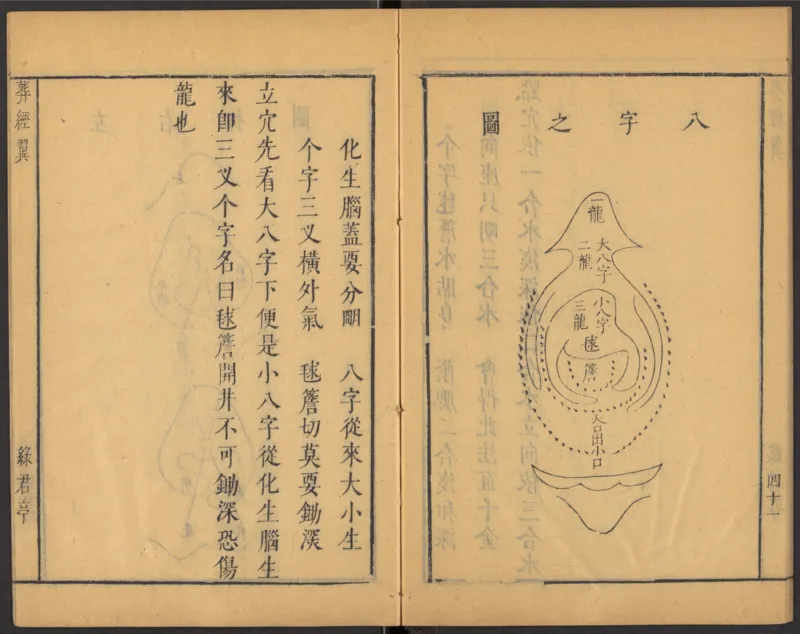 八字之圖
一龍
大八字
二龍
小八字
三龍
毬簷
大口出小口
四十一
化生腦蓋要分明　八字從來大小生
个字三叉橫外氣　毬簷切莫要鋤深
立穴先看大八字下便是小八字從化生腦生
來卽三叉个字名曰毬簷開井不可鋤深恐傷
龍也
葬經翼
綠君亭